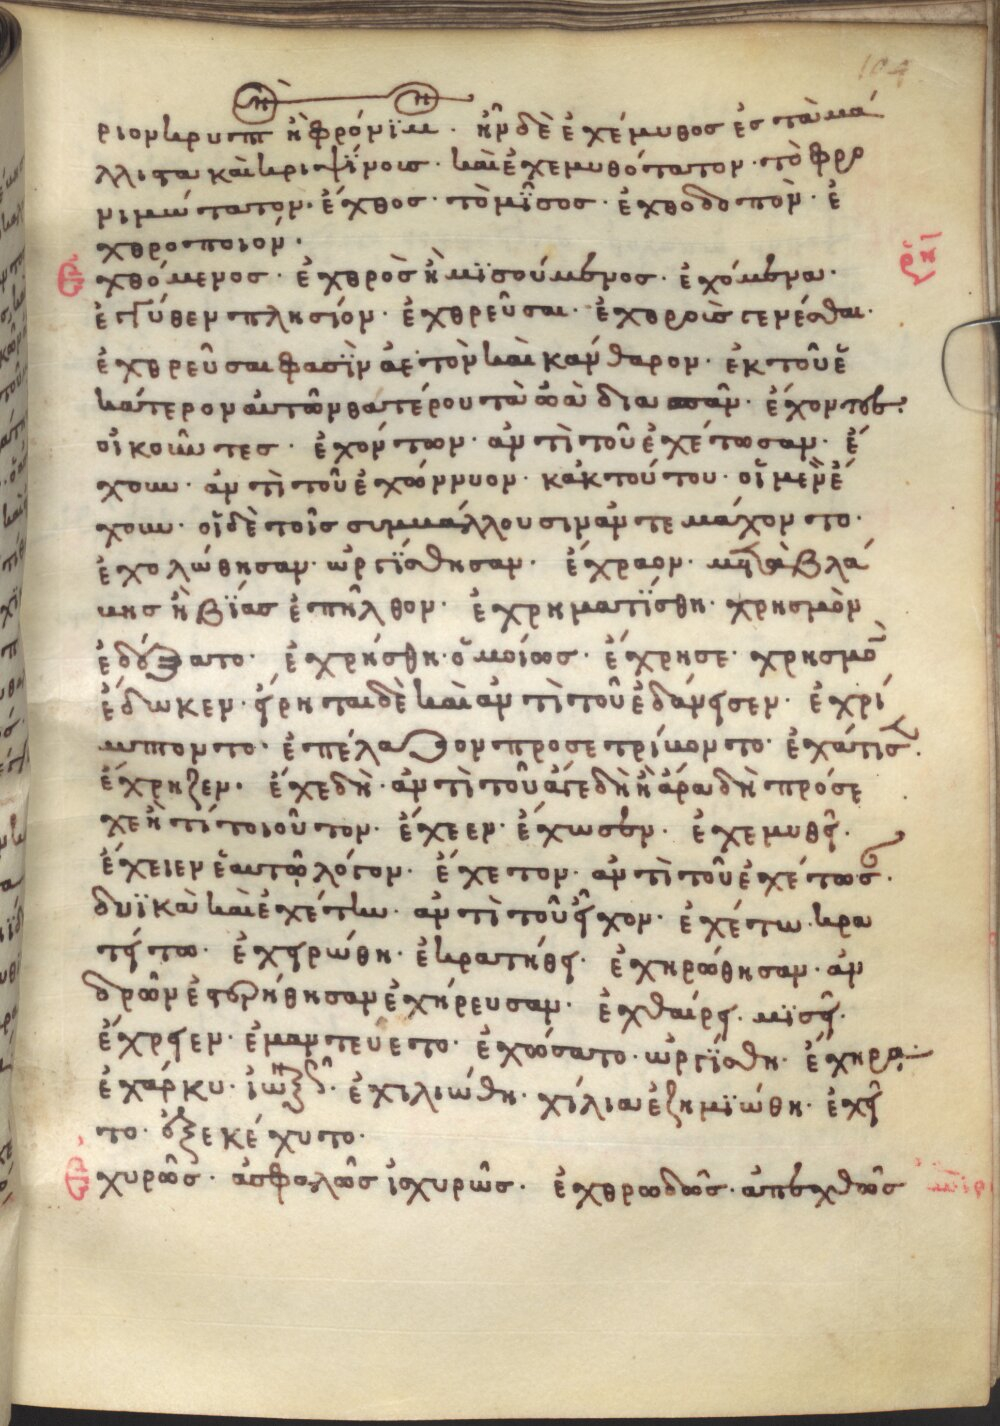 104
ριον κρυπτ ἢ φρόνιμ · ἦν δὲ ἐχέμυθος ἐς τὰ μά
λλιστα καὶ κριψίνους · καὶ ἐχεμυθότατον · τὸ φρο
νιμώτατον · ἔχθος · τὸ μῖσος · ἐχθοδοπὸν · ἐ
χθροποιόν ·
χθόμενος · ἐχθρὸς ἢ μισούμενος · ἐχόμενα ·
ἐγγύθεν πλησίον · ἐχθρεῦσαι · ἐχθροὶς γενέσθαι ·
ἐχθρεῦσαι φασὶν ἀετὸν καὶ κάνθαρον · ἐκ τοῦ ἑ
κάτερον αὐτῶν θατέρου τὰ ὠὰ διασπᾶν · ἔχοντες ·
οἰκοῦντες · ἐχόντων · ἀντὶ τοῦ ἐχέτωσαν · ἔ
χουν · ἀντὶ τοῦ ἐχώννυον · κἀκ τούτου · οἵ μὲν ἔ
χουν · οἵ δὲ τοῖς συμβάλλουσιν ἀντεμάχοντο ·
ἐχολώθησαν · ὠργίσθησαν · ἔχραον · μετὰ βλά
βης ἢ βίας ἐπῆλθον · ἐχρηματίσθη · χρησμὸν
ἐδέξατο · ἐχρήσθη · ὁμοίως · ἔχρησε · χρησμὸ
ἔδωκεν · εἴρηται δὲ καὶ ἀντὶ τοῦ ἐδάνεισεν · ἐχρί
μπτοντο · ἐπέλαζον προσετρίβοντο · ἐχάτισ ·
ἔχρηζεν · ἔχε δὴ · ἀντὶ τοῦ ἄγε δὴ ἢ ἄρα δὴ πρόσε
χε ἤ τί τοιοῦτον · ἔχεεν · ἔχωσεν · ἐχεμυθεῖ ·
ἔχειεν ἑαυτῷ λόγον · ἔχετον · ἀντὶ τοῦ ἐχέτωσ ·
δυϊκὰ καὶ ἐχέτην · ἀντὶ τοῦ εἶχον · ἐχέτω · κρα
τείτω · ἐχειρώθη · ἐκρατήθη · ἐχηρώθησαν · ἀν
δρῶν ἐστερήθησαν ἐχήρευσαν · ἐχθαίρει · μισεῖ ·
ἔχρειεν · ἐμαντεύετο · ἐχώσατο · ὠργίσθη · ἔχηρα ·
ἐχάρκυ · ἐχιλιώθη · χίλια ἐζημιώθη · ἐχεῖ
το · ἐξεκέχυτο ·
χυρῶς · ἀσφαλῶς ἰσχυρῶς · ἐχθρωδῶς · ἀπεχθῶς